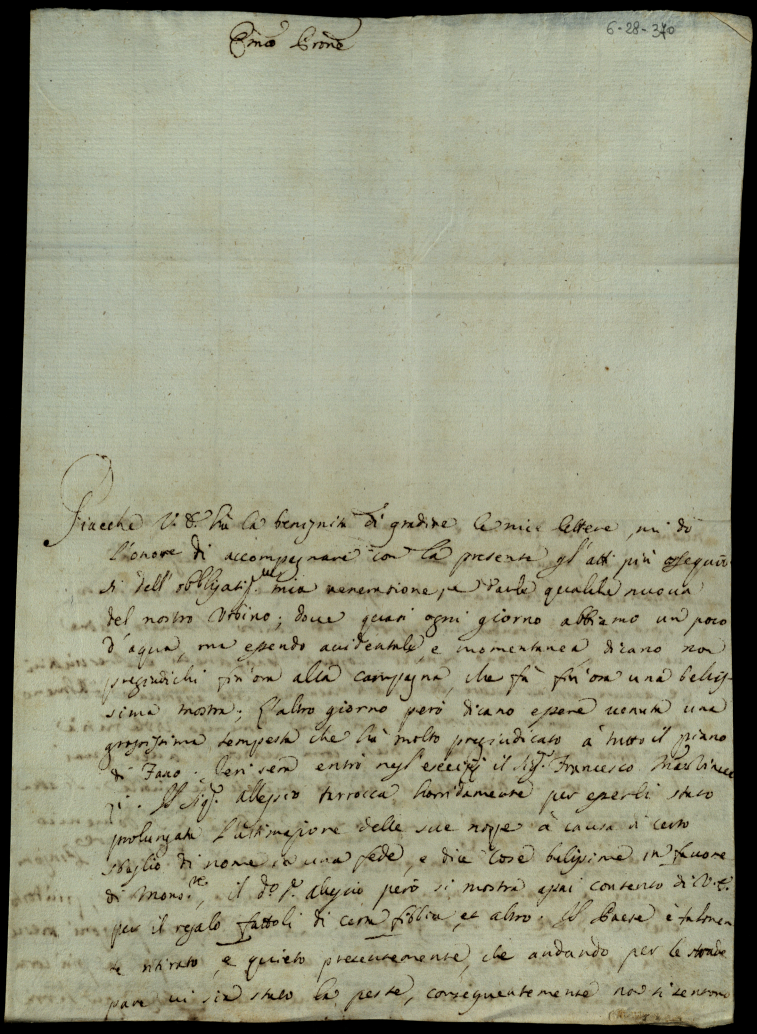 6-28-370
Emo Prone
Giacche V. E. hà la benignità di gradire le mie lettere, mi dò
l'onore di accompagnare con la presente gl'atti più ossequio-
si dell'obbligatis.ma mia venerazione, e darle qualche nuova
del nostro Urbino; dove quasi ogni giorno abbiamo un poco
d'aqua, ma essendo accidentale, e momentanea, dicano non
pregiudichi fin'ora alla campagna, che fà fin'ora una bellis-
sima mostra; l'altro giorno però dicano essere venuta una
grossissima tempesta che hà molto pregiudicato à tutto il piano
di Fano. Ieri sera entrò negl'esercizj il Sig.r Francesco
Il Sig.r Alessio tarrocca horridamente per esserli stato
prolungata l'ultimazione delle sue nozze à causa di certo
sbaglio di nome in una fede, e dice cose bellissime in favore
di Mons.re, il do S.r Alessio però si mostra assai contento di V. E.
per il regalo fattoli di cera et altro. Il Paese è talmen-
te ritirato, e quieto presentemente, che andando per le strade
pare vi sia stato la peste, conseguentemente non si sentono